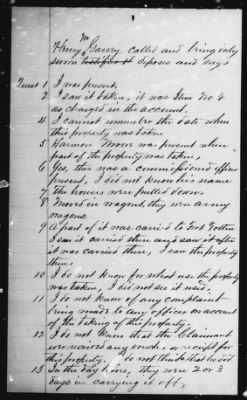 Henry M Garry called and being only
sworn deposes and says
Quest 1 I was present.
2 I saw it taken, it was Item No 4
as charged in the account.
4 I cannot remember the date when
this property was taken
5 Harmon Moore was present when
part of the property was taken,
6 Yes, there was a commissioned officer
present, I did not know his name
7 The houses were pulled down.
8 Moved in wagons, they were army
wagons
9 A part of it was carried to Fort Totten
I saw it carried there and saw it after
it was carried there, I saw the property
there,
10 I do not know for what use the property
was taken, I did not see it used.
11 I do not know of any complaint
being made to any officer on account
of the taking of this property.
12 I do not know that the Claimant
ever received any voucher or receipt for
this property. I do not think that he did
13 In the day time, they were 2 or 3
days in carrying it off,